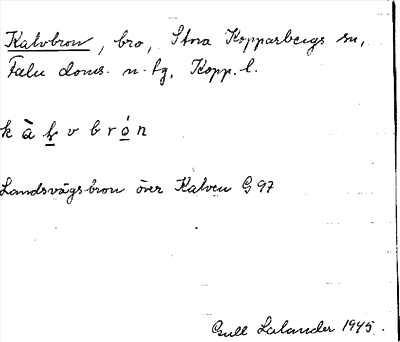 Kalvbron, bro, Stora Kopparbergs sn,
Falu doms. n. tg, Kopp. l.
k à ł v b r ó n
Landsvägsbron över Kalven G 97
Gull Lalander 1945.